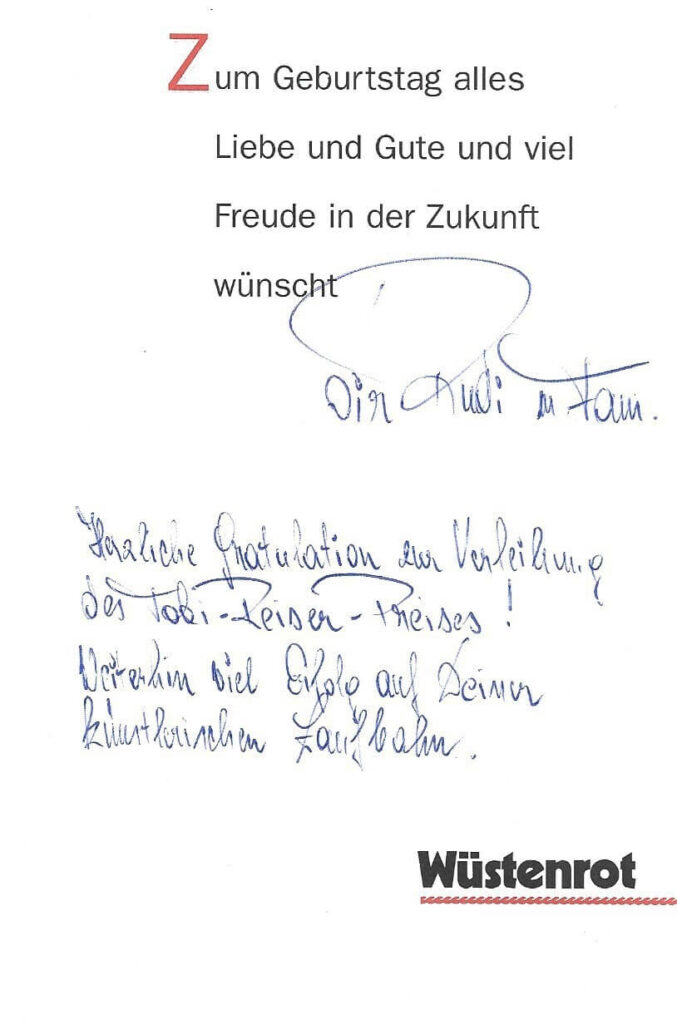 Zum Geburtstag alles
Liebe und Gute und viel
Freude in der Zukunft
wünscht
Dir Rudi m. Fam.
Herzliche Gratulation zur Verleihung
des Tobi-Reiser-Preises!
Weiterhin viel Erfolg auf Deiner
künstlerischen Laufbahn.
Wüstenrot